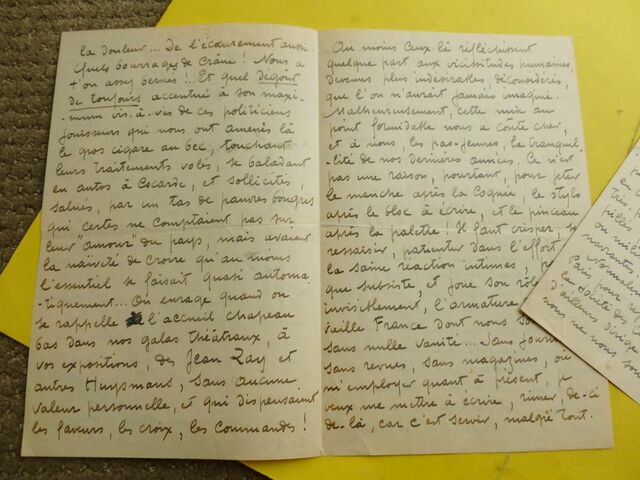 la douleur... De l'écœurement aussi.
Quels bourrages de crâne! Nous a
t'on assez bernés!.. Et quel Dégoût
de toujours accentué à son maxi-
mum vis-à-vis de ces politiciens
jouisseurs qui nous ont amenés là
le gros cigare au bec, touchant
leurs traitements volés, se baladant
en autos à cocarde, et sollicités,
salués, par un tas de pauvres bougres
qui certes ne comptaient pas sur
leur "amour" du pays, mais avaient
la naïveté de croire qu'au moins
l'essentiel se faisait quasi automa-
tiquement... On enrage quand on
se rappelle l'accueil chapeau
bas dans nos galas théâtraux, à
vos expositions, des Jean Zay et
autres Huysmans, sans aucune
valeur personnelle, et qui dispensaient
les faveurs, les croix, les commandes!
Au moins ceux-là réfléchissent
quelque part aux vicissitudes humaines
devenus plus indésirables déconsidérés,
que l'on n'aurait jamais imaginé.
Malheureusement, cette mise au
point formidable nous a coûté cher,
et à nous, les pas-jeunes, la tranquil-
lité de nos dernières années. Ce n'est
pas une raison, pourtant, pour jeter
le manche après la cognée, le stylo
après le bloc à écrire, et le pinceau
après la palette! Il faut crisper, se
ressaisir, patienter dans l'effort
la saine réaction intimes,
que subsiste, et joue son rôle
invisiblement, l'armature
vieille France dont nous
sans nulle vanité... Sans
sans revues, sans magazines, où
m'employer quant à présent, je
veux me mettre à écrire, rimer, de-ci
de-là, car c'est servir, malgré tout.
Paix pour
la Société des
d'ailleurs dirigé
nous ne nous